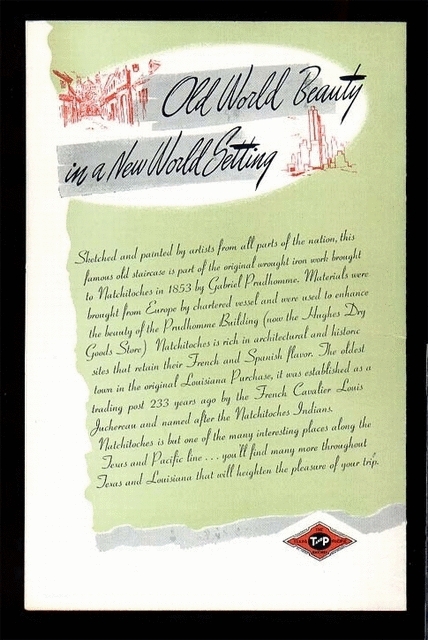 Old World Beauty
in a New World Setting
Sketched and painted by artists from all parts of the nation, this
famous old staircase is part of the original wrought iron work brought
to Natchitoches in 1853 by Gabriel Prudhomme. Materials were
brought from Europe by chartered vessel and were used to enhance
the beauty of the Prudhomme Building (now the Hughes Dry
Goods Store) Natchitoches is rich in architectural and historic
sites that retain their French and Spanish flavor. The oldest
town in the original Louisiana Purchase, it was established as a
trading post 233 years ago by the French Cavalier Louis
Juchereau and named after the Natchitoches Indians.
Natchitoches is but one of the many interesting places along the
Texas and Pacific line . . . you'll find many more throughout
Texas and Louisiana that will heighten the pleasure of your trip.
THE
TEXAS T AND P PACIFIC
RAILWAY